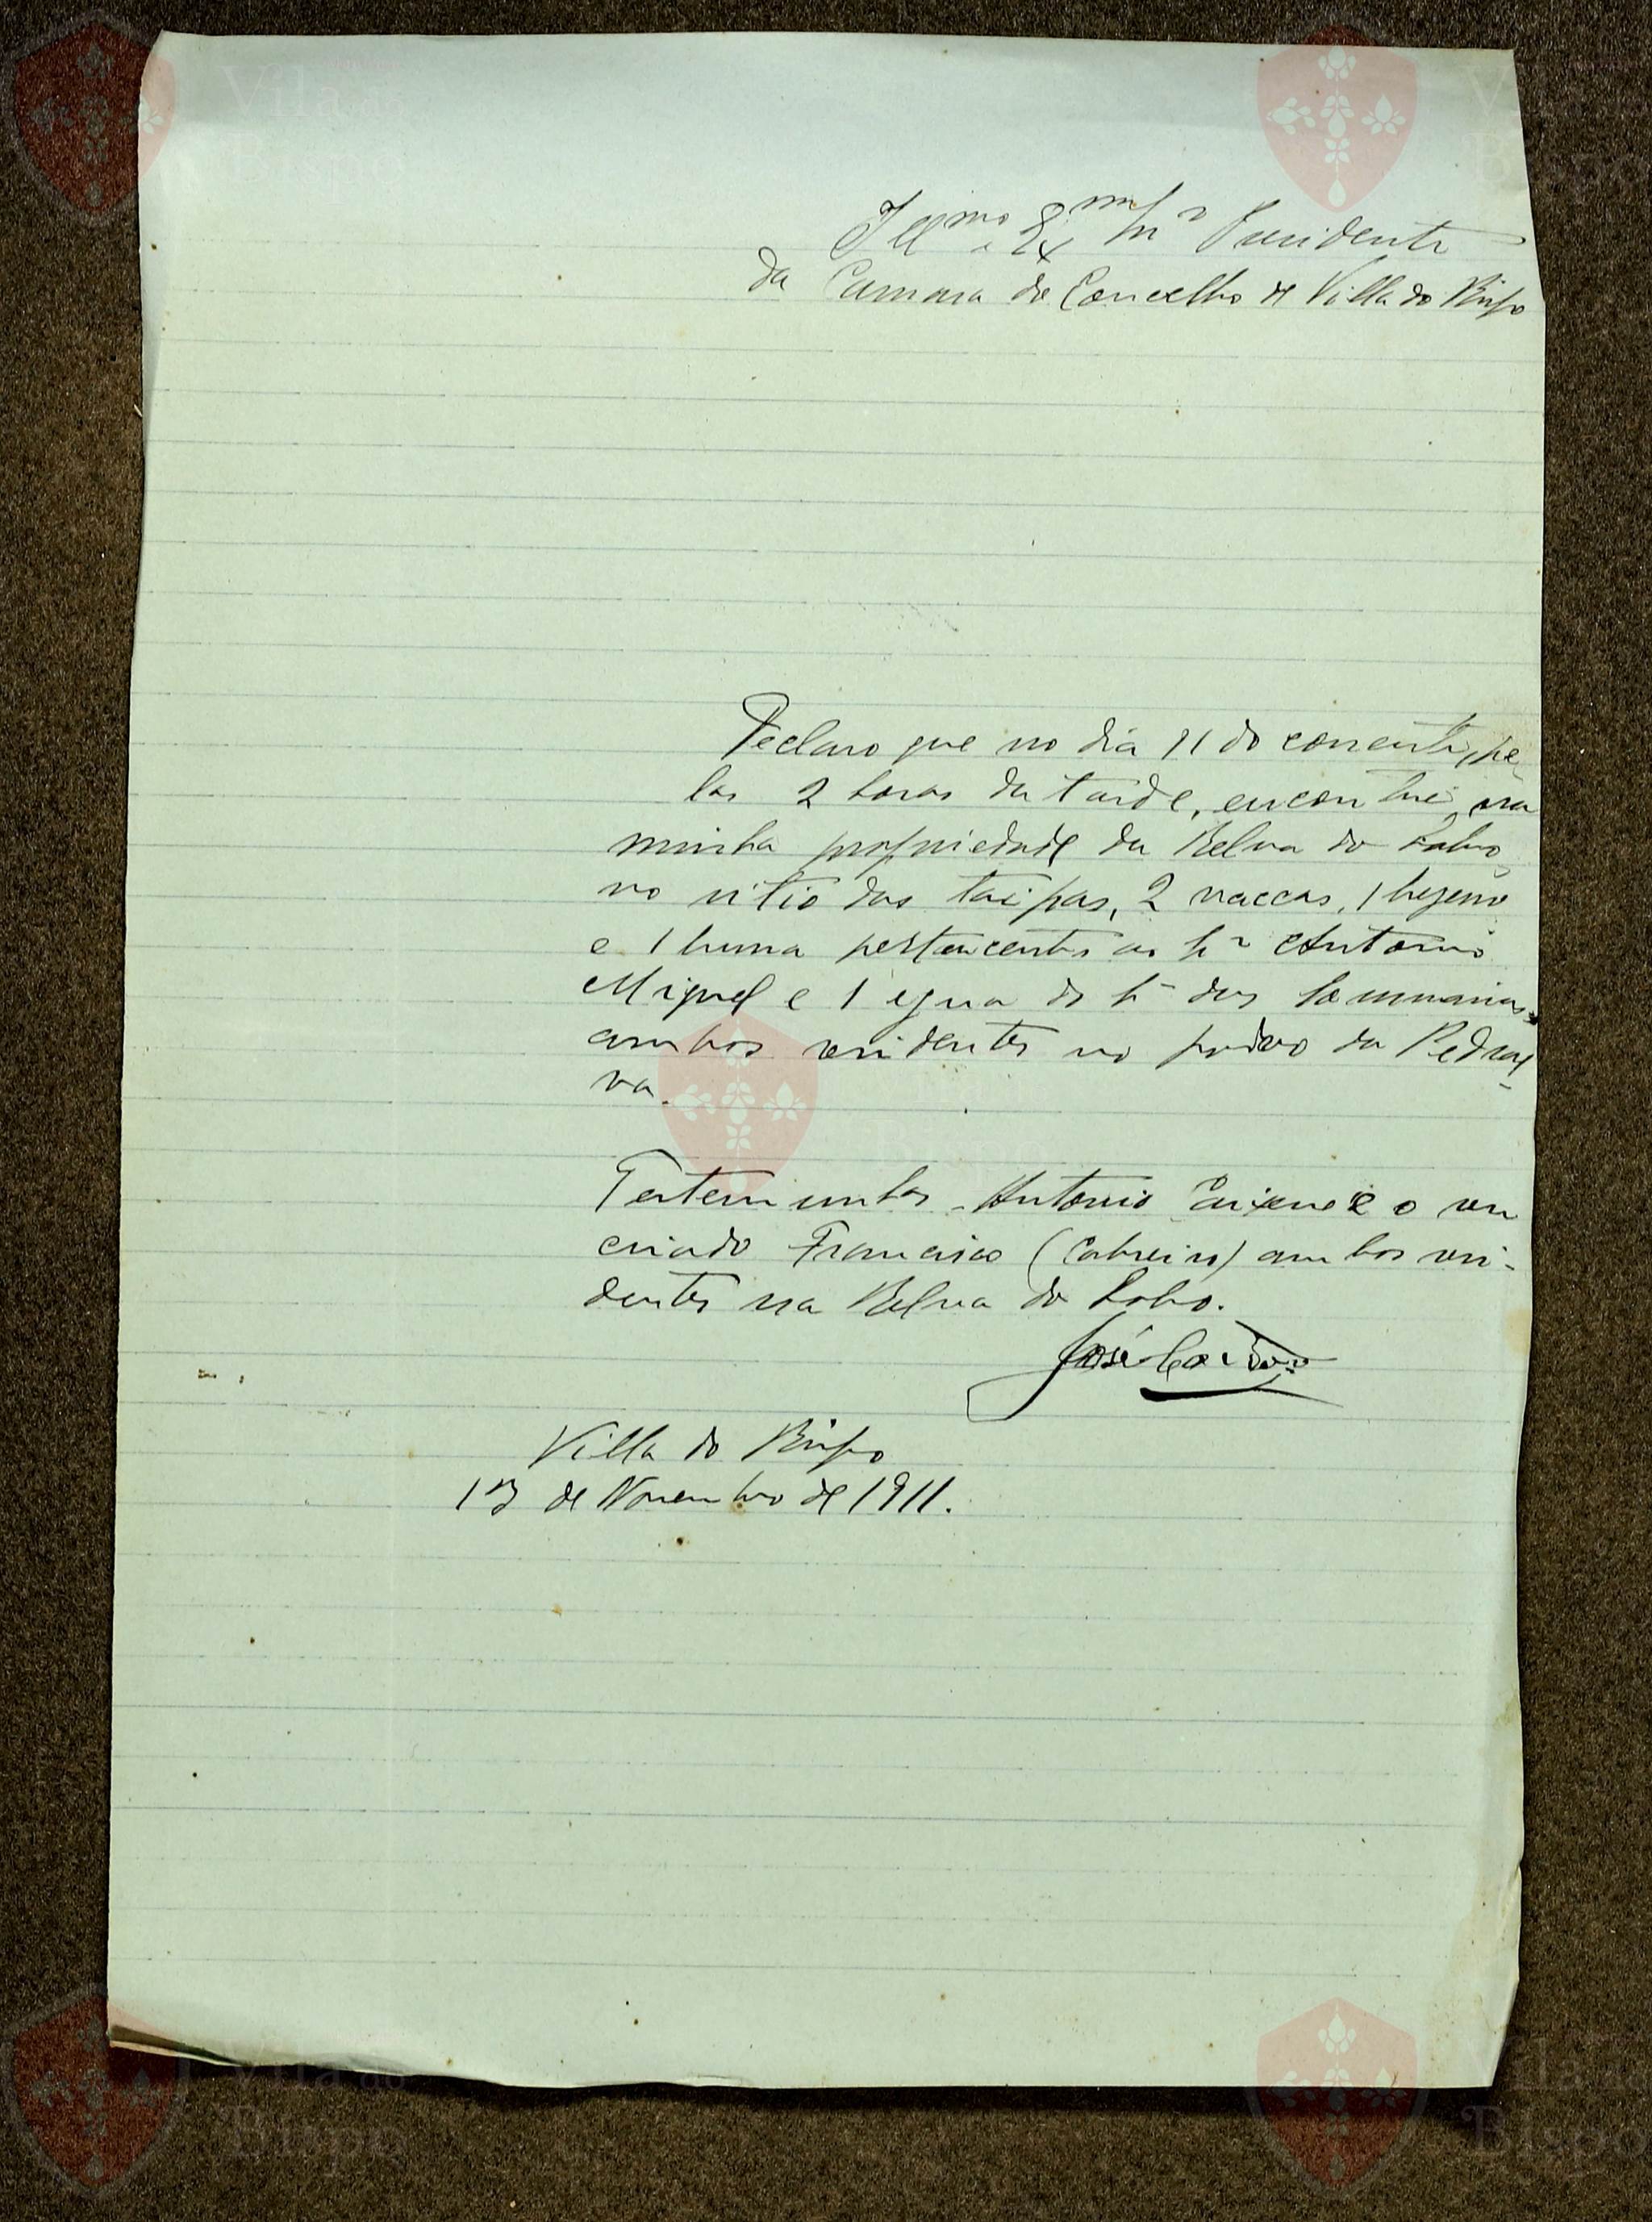 Illmo e Exmo Snr Presidente
da Camara do Concelho de Villa do Bispo
Declaro que no dia 11 do corrente, pe-
las 2 horas da tarde, encontrei, na
minha propriedade da Relva do Lobo,
no sitio das taipas, 2 vaccas, 1 bezerro
e 1 burra pertencentes ao Snr Antonio
Miguel e 1 egua do Snr das
ambos residentes no povo da Pedral-
va.
Testemunhas - Antonio e o seu
criado Francisco (Cabreiro) ambos resi-
dentes na Relva do Lobo.
José Cardoso
Villa do Bispo
13 de Novembro de 1911.
Vila do
Bispo